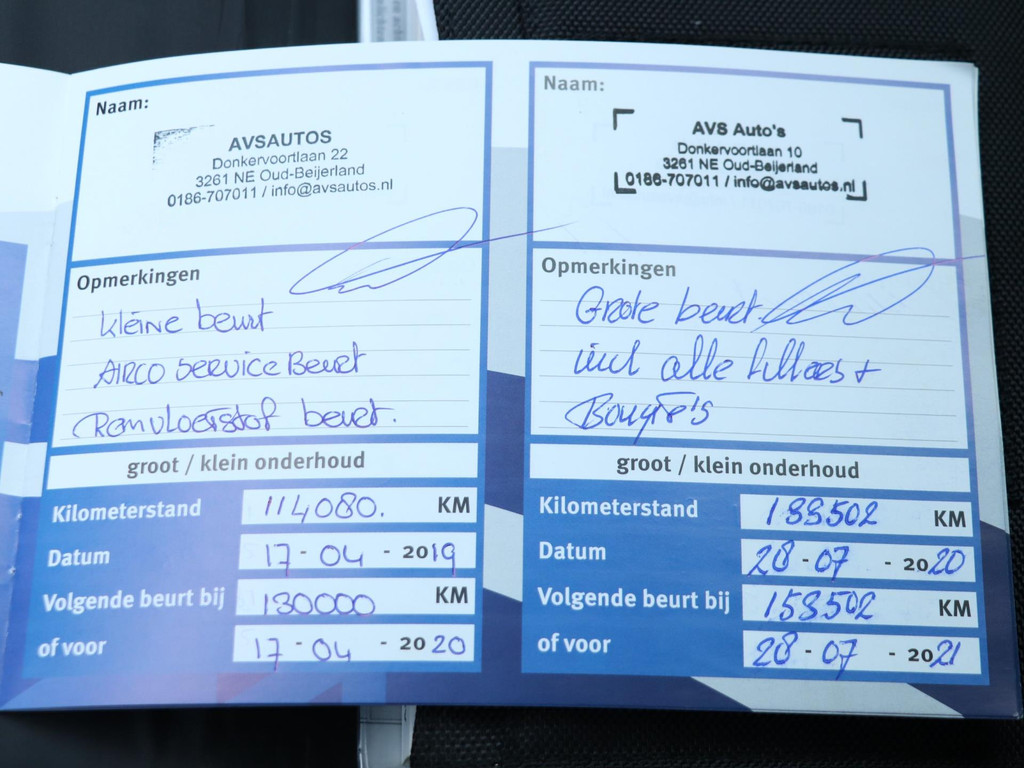 Naam:
AVSAUTOS
Donkervoortlaan 22
3261 NE Oud-Beijerland
0186-707011 / info@avsautos.nl
Opmerkingen
Kleine beurt
AIRCO service Beurt
Remvloeistof beurt.
groot / klein onderhoud
Kilometerstand 114080. KM
Datum 17-04-2019
Volgende beurt bij 130000 KM
of voor 17-04-2020
Naam:
AVS Auto's
Donkervoortlaan 10
3261 NE Oud-Beijerland
0186-707011 / info@avsautos.nl
Opmerkingen
Grote beurt.
incl alle filters +
Bougie's
groot / klein onderhoud
Kilometerstand KM
Datum 28-07-2020
Volgende beurt bij KM
of voor 28-07-2021